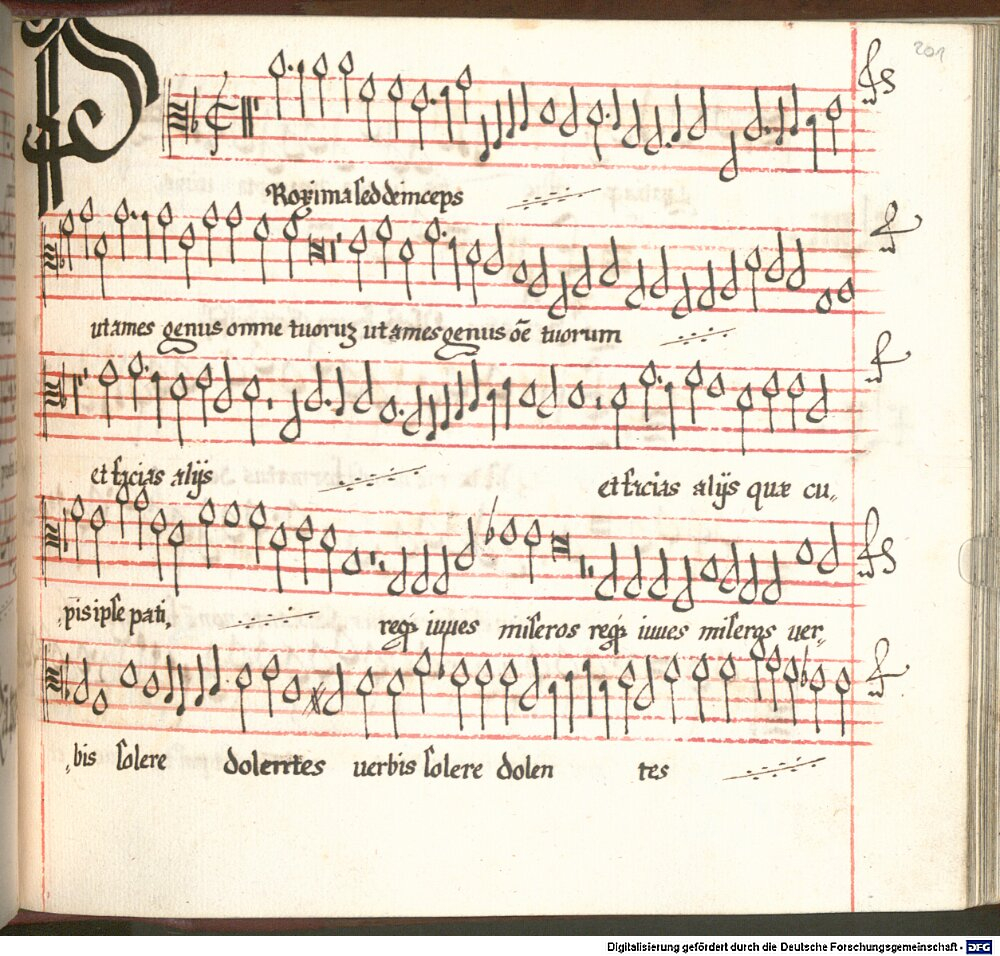 201
PRoxima sed deinceps
ut ames genus omne tuorum ut ames genus oē tuorum
et facias alijs et facias alijs quæ cu,,
,,pis ipse pati, reqz iuues miseros reqz iuues miseros uer,,
,,bis solere dolentes uerbis solere dolen tes
Digitalisierung gefördert durch die Deutsche Forschungsgemeinschaft - DFG